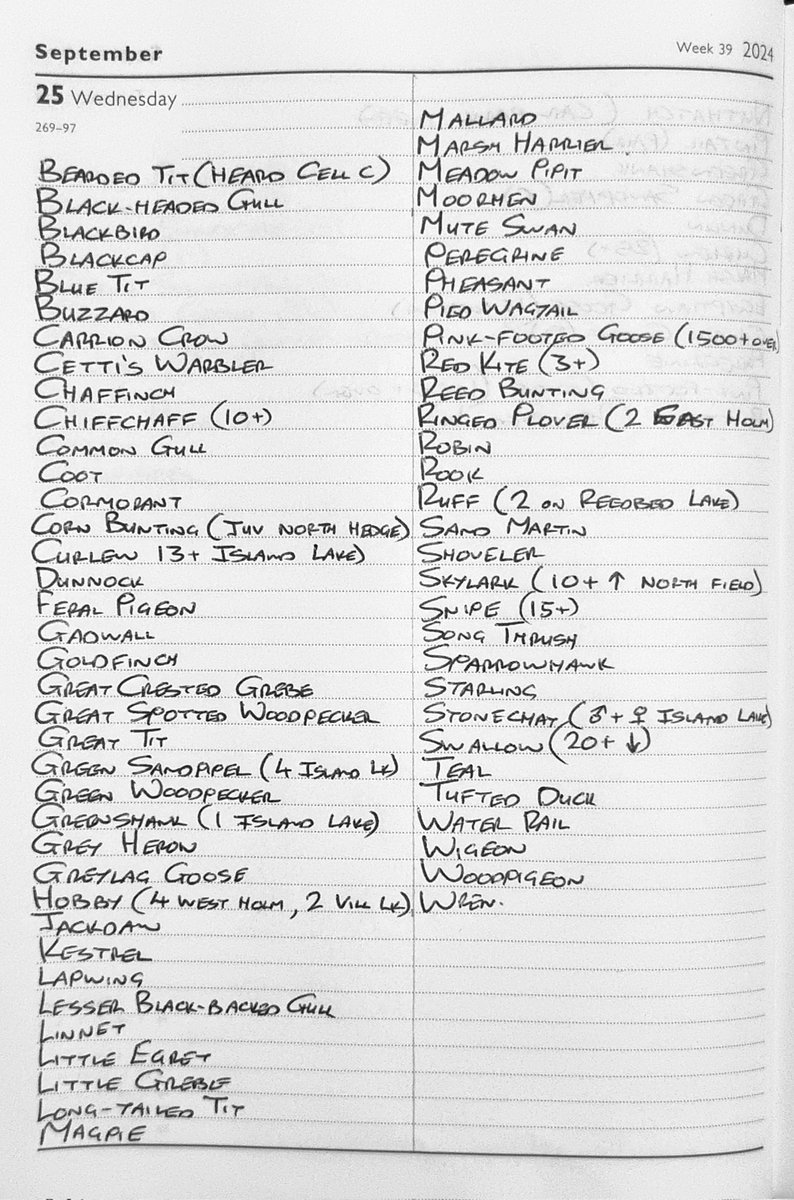 September
Week 39 2024
25 Wednesday
269-97
BEARDED TIT (HEARD CELL C)
BLACK-HEADED GULL
BLACKBIRD
BLACKCAP
BLUE TIT
BUZZARD
CARRION CROW
CETTI'S WARBLER
CHAFFINCH
CHIFFCHAFF (10+)
COMMON GULL
COOT
CORMORANT
CORN BUNTING (JUV NORTH HEDGE)
CURLEW 13+ ISLAND LAKE)
DUNNOCK
FERAL PIGEON
GADWALL
GOLDFINCH
GREAT CRESTED GREBE
GREAT SPOTTED WOODPECKER
GREAT TIT
GREEN SANDPIPEL (4 ISLAND LK)
GREEN WOODPECKER
GREENSHANK (1 ISLAND LAKE)
GREY HERON
GREYLAG GOOSE
HOBBY (4 WEST HOLM, 2 VILL LK)
JACKDAW
KESTREL
LAPWING
LESSER BLACK-BACKED GULL
LINNET
LITTLE EGRET
LITTLE GREBE
LONG-TAILED TIT
MAGPIE
MALLARD
MARSH HARRIER
MEADOW PIPIT
MOORHEN
MUTE SWAN
PEREGRINE
PHEASANT
PIED WAGTAIL
PINK-FOOTED GOOSE (1500+ OVER)
RED KITE (3+)
REED BUNTING
RINGED PLOVER (2 EAST HOLM)
ROBIN
ROOK
RUFF (2 ON REEDBED LAKE)
SAND MARTIN
SHOVELER
SKYLARK (10+ ↑ NORTH FIELD)
SNIPE (15+)
SONG THRUSH
SPARROWHAWK
STARLING
STONECHAT (♂ + ♀ ISLAND LAKE)
SWALLOW (20+ ↓)
TEAL
TUFTED DUCK
WATER RAIL
WIGEON
WOODPIGEON
WREN.